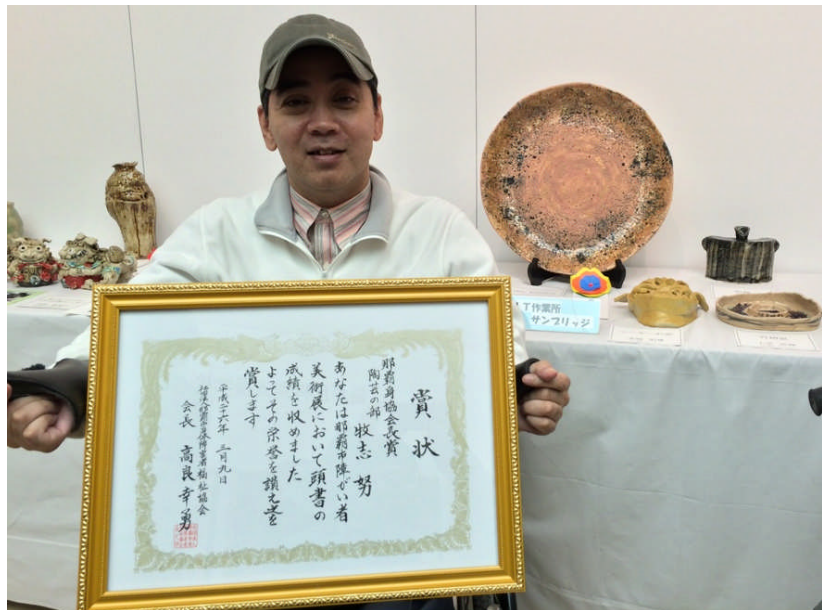 賞状
那覇身協会長賞
陶芸の部 牧志 努
あなたは那覇市障がい者
美術展において頭書の
成績を収めました
よってその栄誉を讃え
賞します
平成二十六年 三月九日
会長 高良幸勇
作業所
サンブリッジ